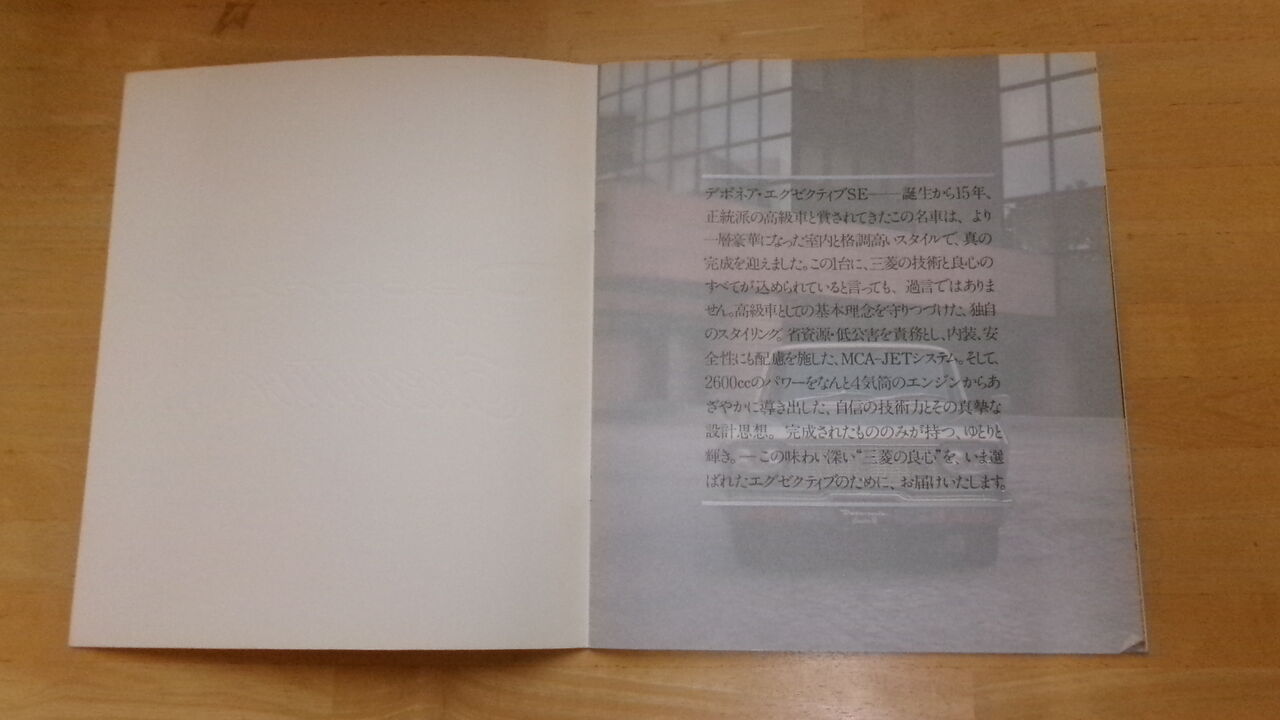 デボネア・エグゼクティブSE――誕生から15年、
正統派の高級車と賞されてきたこの名車は、より
一層豪華になった室内と格調高いスタイルで、真の
完成を迎えました。この1台に、三菱の技術と良心の
すべてが込められていると言っても、過言ではありま
せん。高級車としての基本理念を守りつづけた、独自
のスタイリング。省資源・低公害を責務とし、内装、安
全性にも配慮を施した、MCA-JETシステム。そして、
2600ccのパワーをなんと4気筒のエンジンからあ
ざやかに導き出した、自信の技術力とその真摯な
設計思想。完成されたもののみが持つ、ゆとりと
輝き。―この味わい深い“三菱の良心”を、いま選
ばれたエグゼクティブのために、お届けいたします。